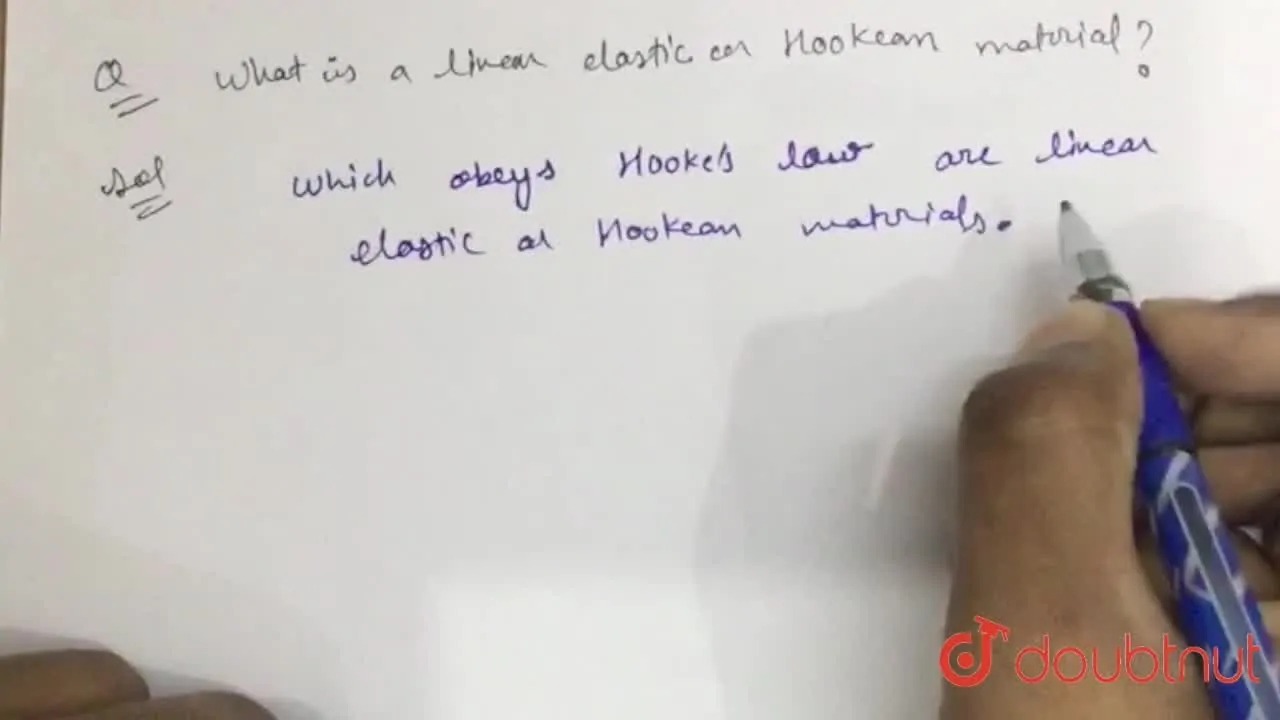 Q What is a linear elastic or Hookean material?
Sol Which obeys Hooke's law are linear
elastic or Hookean materials.
doubtnut